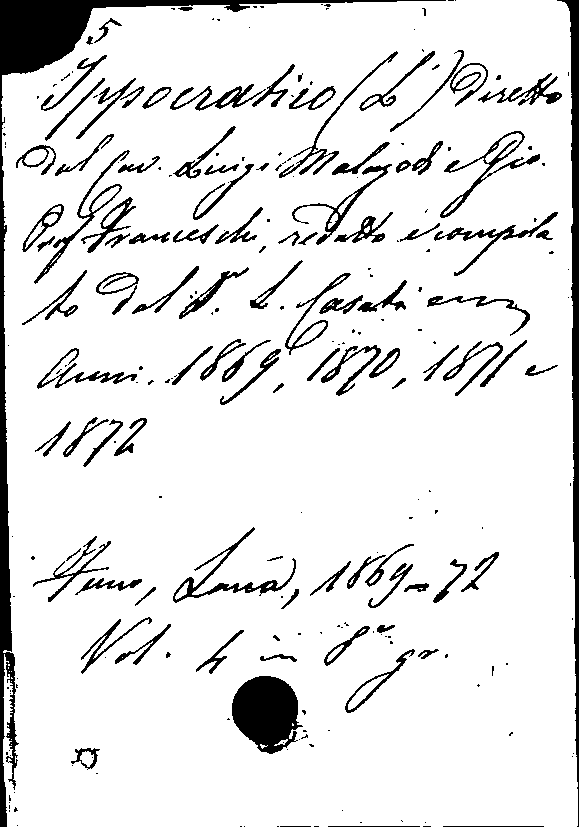 5
Ippocratico (L') diretto
dal Cav. Luigi Malagodi e Gio.
Prof. Franceschi, redatto e compila
to dal Dr. L. Casati
Anni. 1869, 1870, 1871 e
1872
Fano, Lana, 1869-72
Vol. 4 in 8° gr.